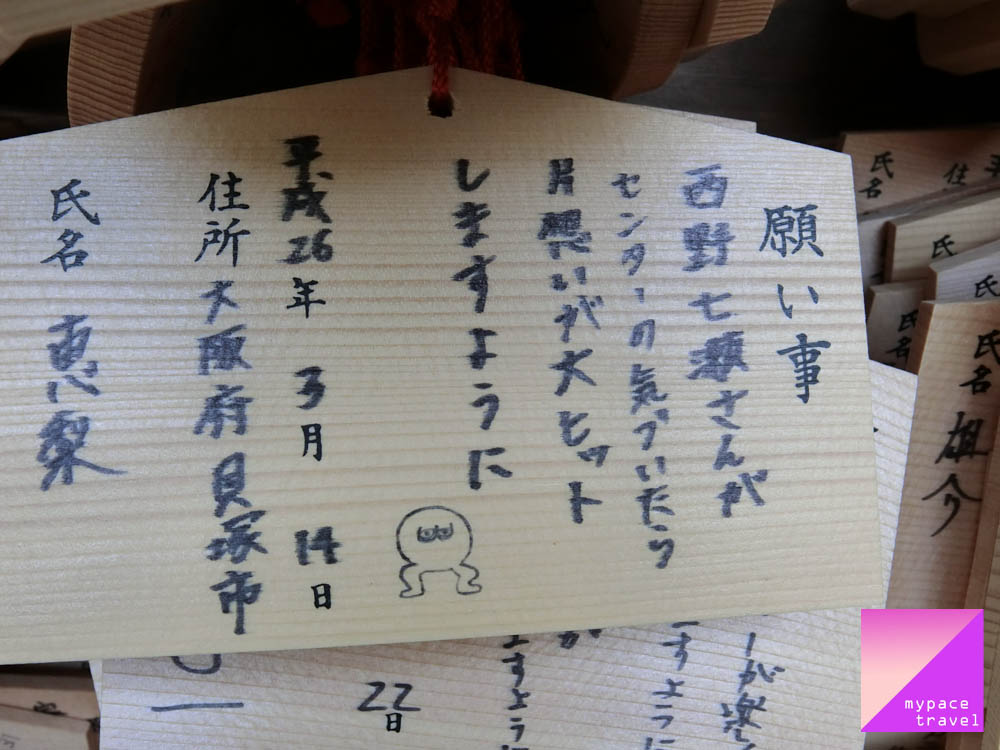 願い事
西野七瀬さんが
センターの気づいたら
片想いが大ヒット
しますように
平成26年 3月 14日
住所 大阪府貝塚市
氏名 恵梨
氏名
住
氏
氏
氏名
氏名 雄介
ーが楽
ますように
ますように
22日
mypace
travel